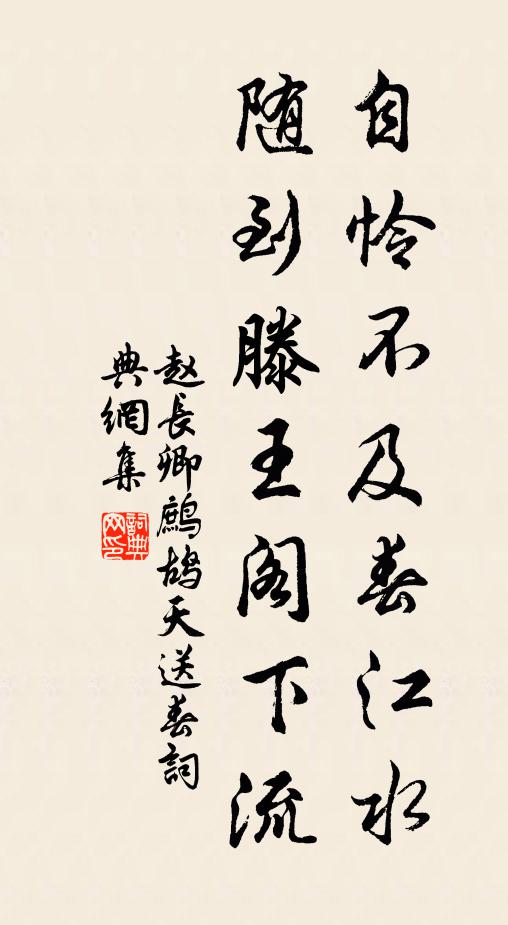 自怜不及春江水
随到滕王阁下流
赵長卿鹧鸪天送春詞
典網集
詞典網印